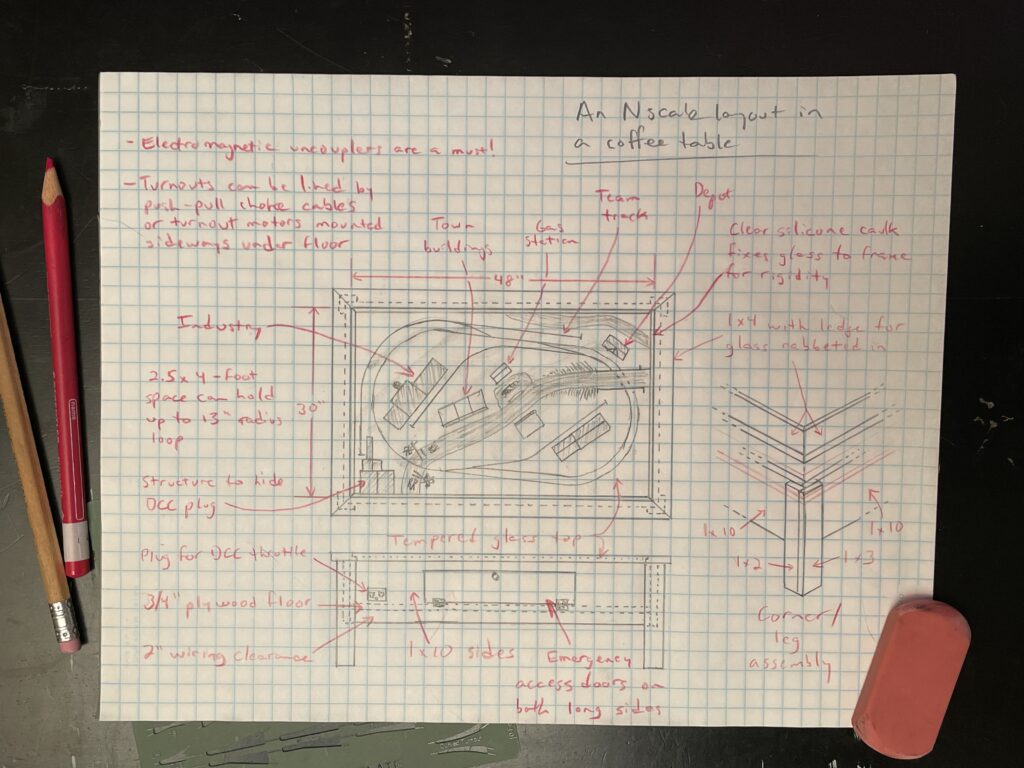 An N scale layout in
a coffee table
- Electromagnetic uncouplers are a must!
- Turnouts can be lined by
push-pull choke cables
or turnout motors mounted
sideways under floor
Town
buildings
Gas
station
Team
track
Depot
Clear silicone caulk
fixes glass to frame
for rigidity
48"
Industry
1x4 with ledge for
glass rabbeted in
2.5 x 4-foot
space can hold
up to 13" radius
loop
30"
Structure to hide
DCC plug
Tempered glass top
Plug for DCC throttle
3/4" plywood floor
2" wiring clearance
1x10 sides
Emergency
access doors on
both long sides
1x10
1x10
1x2
1x3
Corner/
leg
assembly